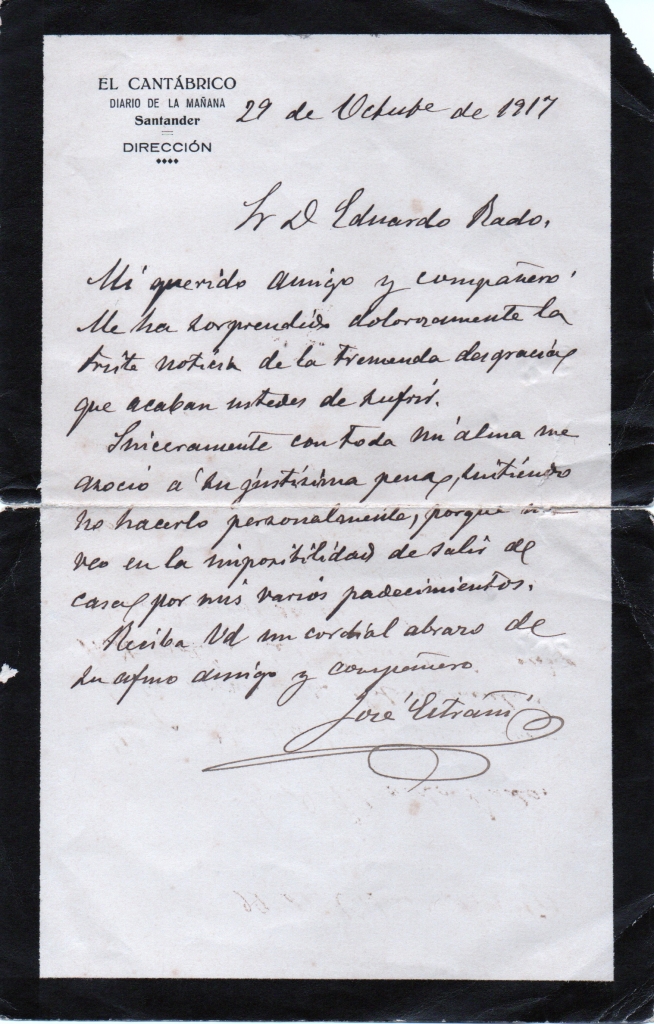 EL CANTÁBRICO
DIARIO DE LA MAÑANA
Santander
DIRECCIÓN
29 de Octubre de 1917
Sr D Eduardo Rado.
Mi querido amigo y compañero:
Me ha sorprendido dolorosamente la
triste noticia de la tremenda desgracia
que acaban ustedes de sufrir.
Sinceramente con toda mi alma me
asocio á su justísima pena, sintiendo
no hacerlo personalmente, porque me
veo en la imposibilidad de salir de
casa por mis varios padecimientos.
Reciba Vd un cordial abrazo de
su afmo amigo y compañero
José Estrañi